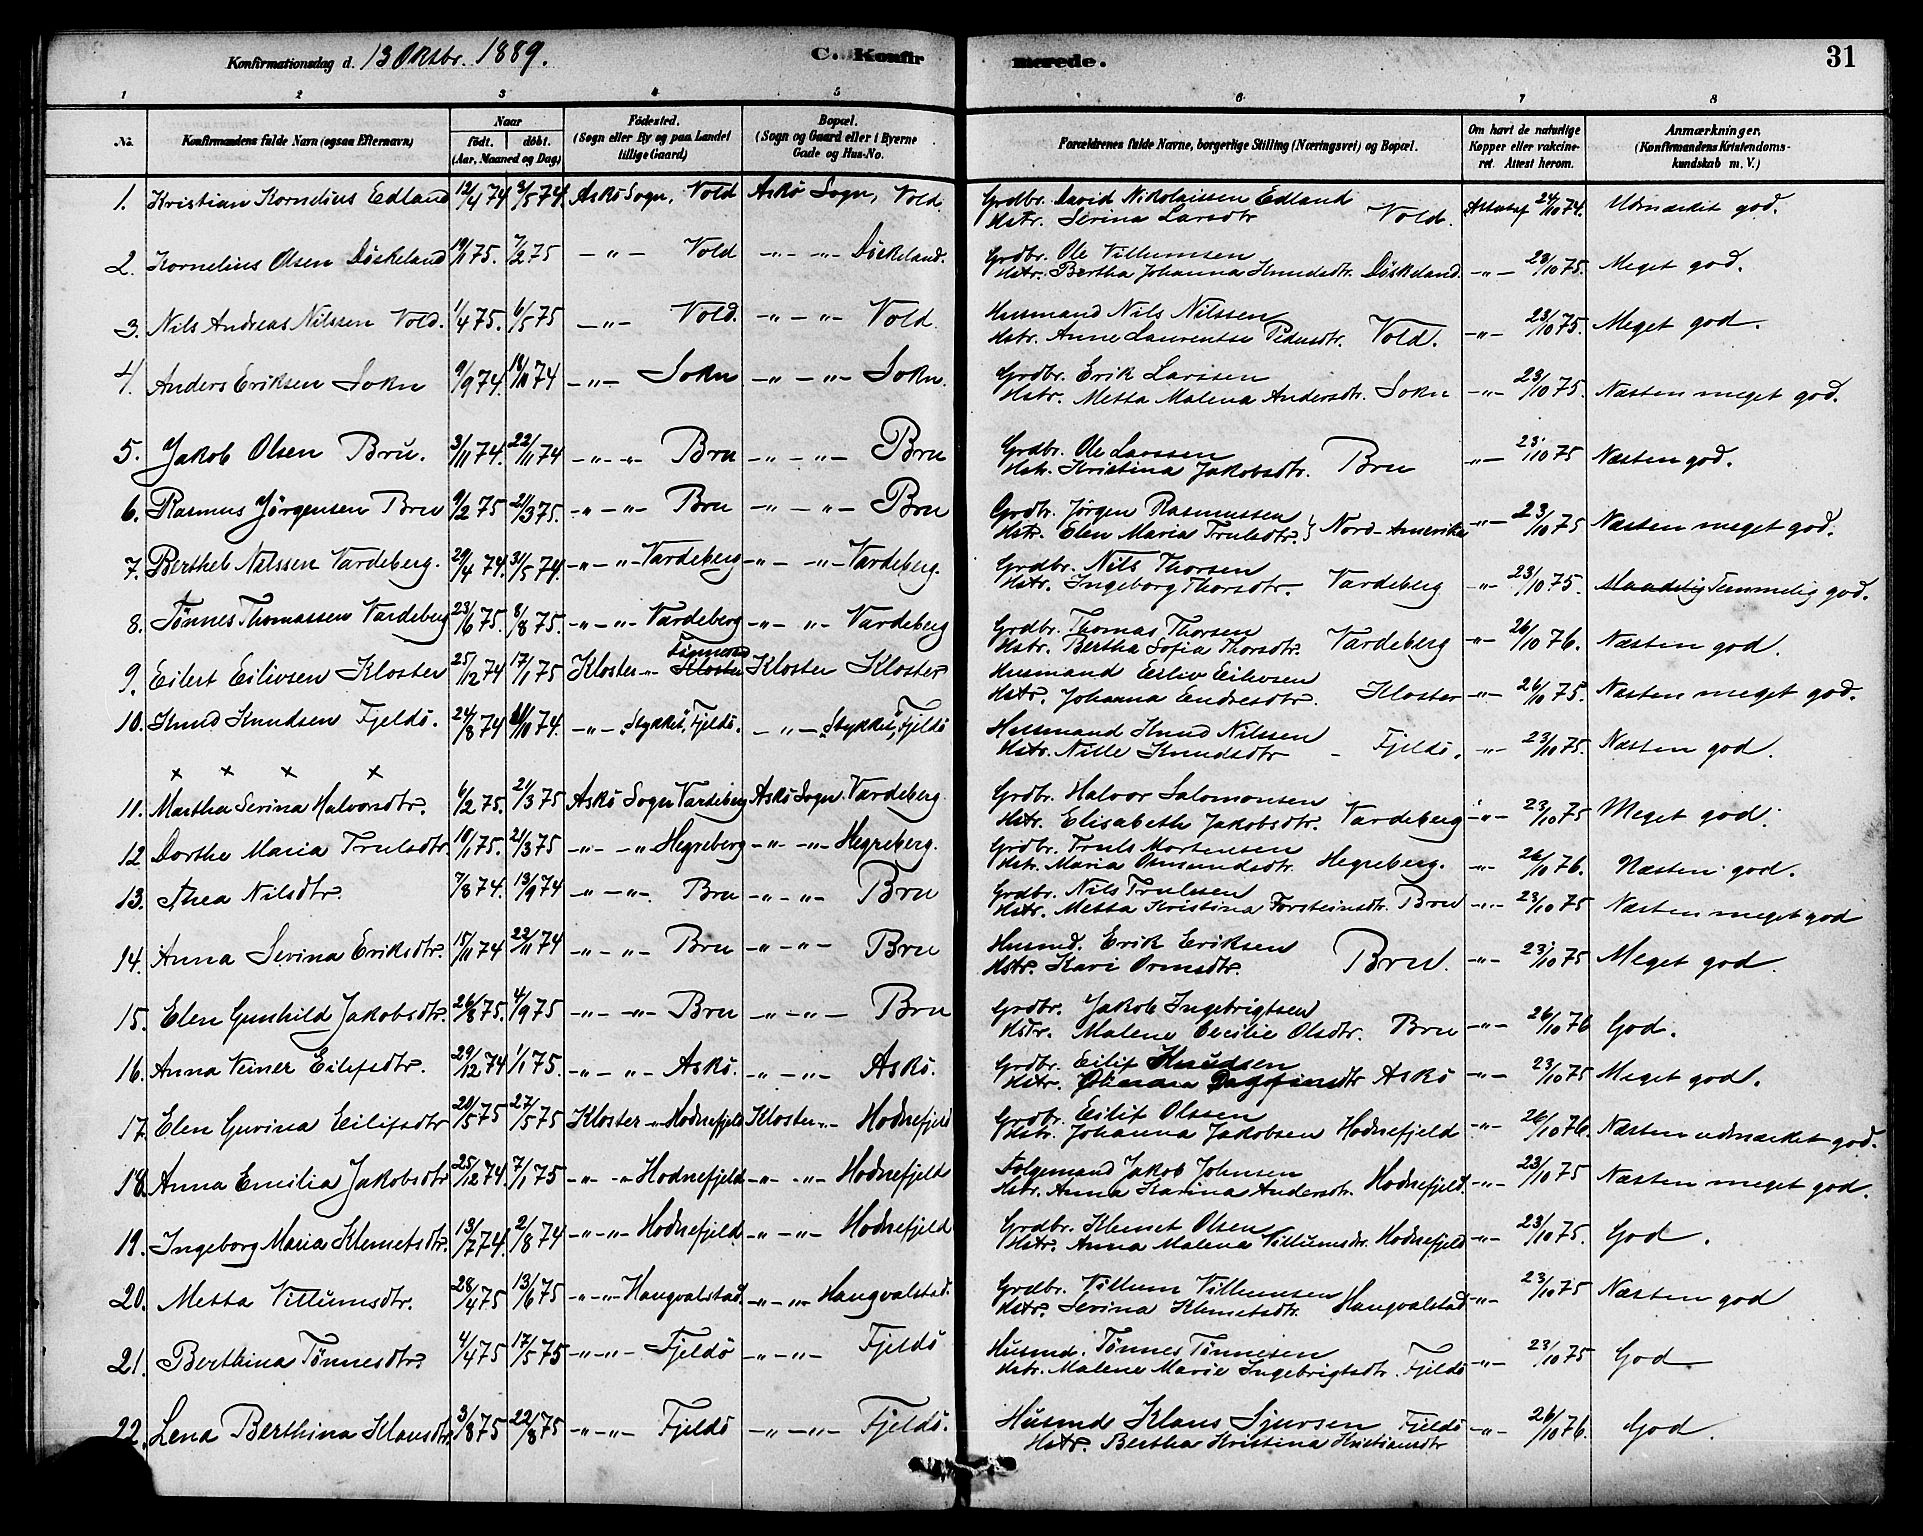 Konfirmationsdag d. 13 Oktbr. 1889. C. Konfirmerede. 31
1 2 3 4 5 6 7 8
No. Konfirmandens fulde Navn (ogsaa Efternavn) Naar født. døbt. (Aar, Maaned og Dag) Fødested. (Sogn eller By og paa Landet tillige Gaard) Bopæl. (Sogn og Gaard eller i Byerne Gade og Hus-No. Forældrenes fulde Navne, borgerlige Stilling (Næringsvei) og Bopæl. Om havt de naturlige Kopper eller vakcineret. Attest herom. Anmærkninger. (Konfirmandens Kristendomskundskab m. V.)
1. Kristian Kornelius Edland 12/4 74 3/5 74. Askö Sogn, Vold Askö Sogn, Vold. Grdbr. David Nikolaissen Edland Hstr. Serina Larsdtr Vold. Attest af 24/10 74. Udmærket god.
2. Kornelius Olsen Diskeland 19/1 75. 7/2 75 -"- Vold -"- -"- Diskeland. Grdbr. Ole Villumsen Hstr. Bertha Johanna Knudsdtr. Diskeland. -"- 23/10 75. Meget god.
3. Nils Andreas Nilssen Vold. 1/4 75. 6/5 75 -"- Vold. -"- "- Vold. Husmand Nils Nilssen Hstr. Anne Laurentse Pedersdtr. Vold. -"- 23/10 75. Meget god.
4. Anders Eriksen Sokn 9/9 74. 18/10 74 -"- Sokn -"- "- Sokn. Grdbr. Erik Larssen Hstr. Metta Malena Andersdtr. Sokn -"- 23/10 75. Næsten meget god.
5. Jakob Olsen Bru. 3/11 74. 22/11 74 -"- "- Bru -"- "- Bru Grdbr. Ole Larssen Hstr. Kristina Jakobsdtr. Bru -"- 23/10 75 Næsten god.
6. Rasmus Jörgensen Bru 9/2 75 21/3 75. -"- "- Bru -"- "- Bru Grdbr. Jørgen Rasmussen Hstr. Elen Maria Trulsdtr. } Nord-Amerika -"- 23/10 75 Næsten meget god.
7. Berthel Nilssen Vardeberg. 29/4 74. 31/5 74. -"- "- Vardeberg -"- "- Vardeberg. Grdbr. Nils Thorsen Hstr. Ingeborg Thorsdtr. Vardeberg "- 23/10 75. Maadelig Temmelig god.
8. Tønnes Thomassen Vardeberg 23/6 75. 8/8 75. -"- "- Vardeberg -"- "- Vardeberg Grdbr. Thomas Thorsen Hstr. Bertha Sofia Thorsdtr. Vardeberg "- 26/10 76. Næsten god.
9. Eilert Eilivsen Kloster 25/12 74 17/1 75 Kloster "- Kloster Kloster Kloster Husmand Eiliv Eilivsen Hstr. Johanna Endresdtr. Kloster -"- 26/10 75. Næsten meget god.
10. Knud Knudsen Fjeldö. 24/8 74 11/10 74. -"- "Stykket", Fjeldö. -"- "Stykket", Fjeldö Husmand Knud Nilssen Hstr. Nille Knudsdtr - Fjeldö. "- 23/10 75. Næsten god.
× × × ×
11. Martha Serina Halvorsdtr. 6/2 75. 21/3 75 Askö Sogn Vardeberg Askö Sogn. Vardeberg. Grdbr. Halvor Salomonsen Hstr. Elisabeth Jakobsdtr. Vardeberg -"- 23/10 75 Meget god.
12 Dorthe Maria Trulsdtr. 18/1 75. 21/3 75 -"- "- Hegreberg -"- "- Hegreberg. Grdbr. Truls Mortensen Hstr. Maria Osmundsdtr. Hegreberg. -"- 26/10 76. Næsten god.
13. Thea Nilsdtr. 7/8 74. 13/9 74 -"- "- Bru -"- "- Bru Grdbr. Nils Trulssen Hstr. Metta Kristina Torsteinsdtr. Bru -"- 23/10 75 Næsten meget god
14. Anna Serina Eriksdtr. 15/11 74 22/11 74 -"- "- Bru -"- "- Bru Husmd. Erik Eriksen Hstr. Kari Ormsdtr. Bru. -"- 23/10 75 Meget god.
15. Elen Gunhild Jakobsdtr. 26/8 75. 4/9 75 -"- "- Bru -"- "- Bru Grdbr. Jakob Ingebrigtsen Hstr. Malene Cecilie Olsdtr. Bru -"- 26/10 76 God.
16. Anna Veiner Eilifsdtr. 29/12 74 1/1 75. -"- "- Askö. -"- "- Askö. Grdbr. Eilif Knudsen Hstr. Dagfinnsdtr Askö -"- 23/10 75 Meget god.
17. Elen Gurina Eilifsdtr 20/5 75 27/5 75 Kloster "- Hodnefjeld Kloster "- Hodnefjeld Grdbr. Eilif Olssen Hstr. Johanna Jakobsen Hodnefjeld -"- 26/10 76. Næsten udmærket god.
18. Anna Emilia Jakobsdtr 25/12 74. 7/1 75 -"- "- Hodnefjeld -"- "- Hodnefjeld Folgemand Jakob Johnsen Hstr. Anna Karina Andersdtr. Hodnefjeld. -"- 23/10 75 Næsten meget god.
19. Ingeborg Maria Klemetsdtr. 13/7 74. 2/8 74 -"- "- Hodnefjeld. -"- "- Hodnefjeld Grdbr. Klemet Olsen Hstr. Anna Malena Villumsdtr. Hodnefjeld -"- 23/10 75. God.
20. Metta Villumsdtr. 28/4 75 13/6 75 -"- "- Haugvalstad -"- "- Haugvalstad. Grdbr. Villum Villumsen Hstr. Serina Klemetsdtr. Haugvalstad -"- 23/10 75 Næsten god
21. Berthina Tønnesdtr. 4/4 75 17/5 75 -"- "- Fjeldö -"- "- Fjeldö Husmd. Tønnes Tønnesen Hstr. Malene Marie Ingebrigtsdtr. Fjeldö -"- 23/10 75 God
22. Lena Berthina Klausdtr. 3/8 75 22/8 75 -"- "- Fjeldö -"- "- Fjeldö. Husmd. Klaus Sjursen Fjeldö Hstr. Bertha Kristina Kristiansdtr -"- 26/10 76. God.